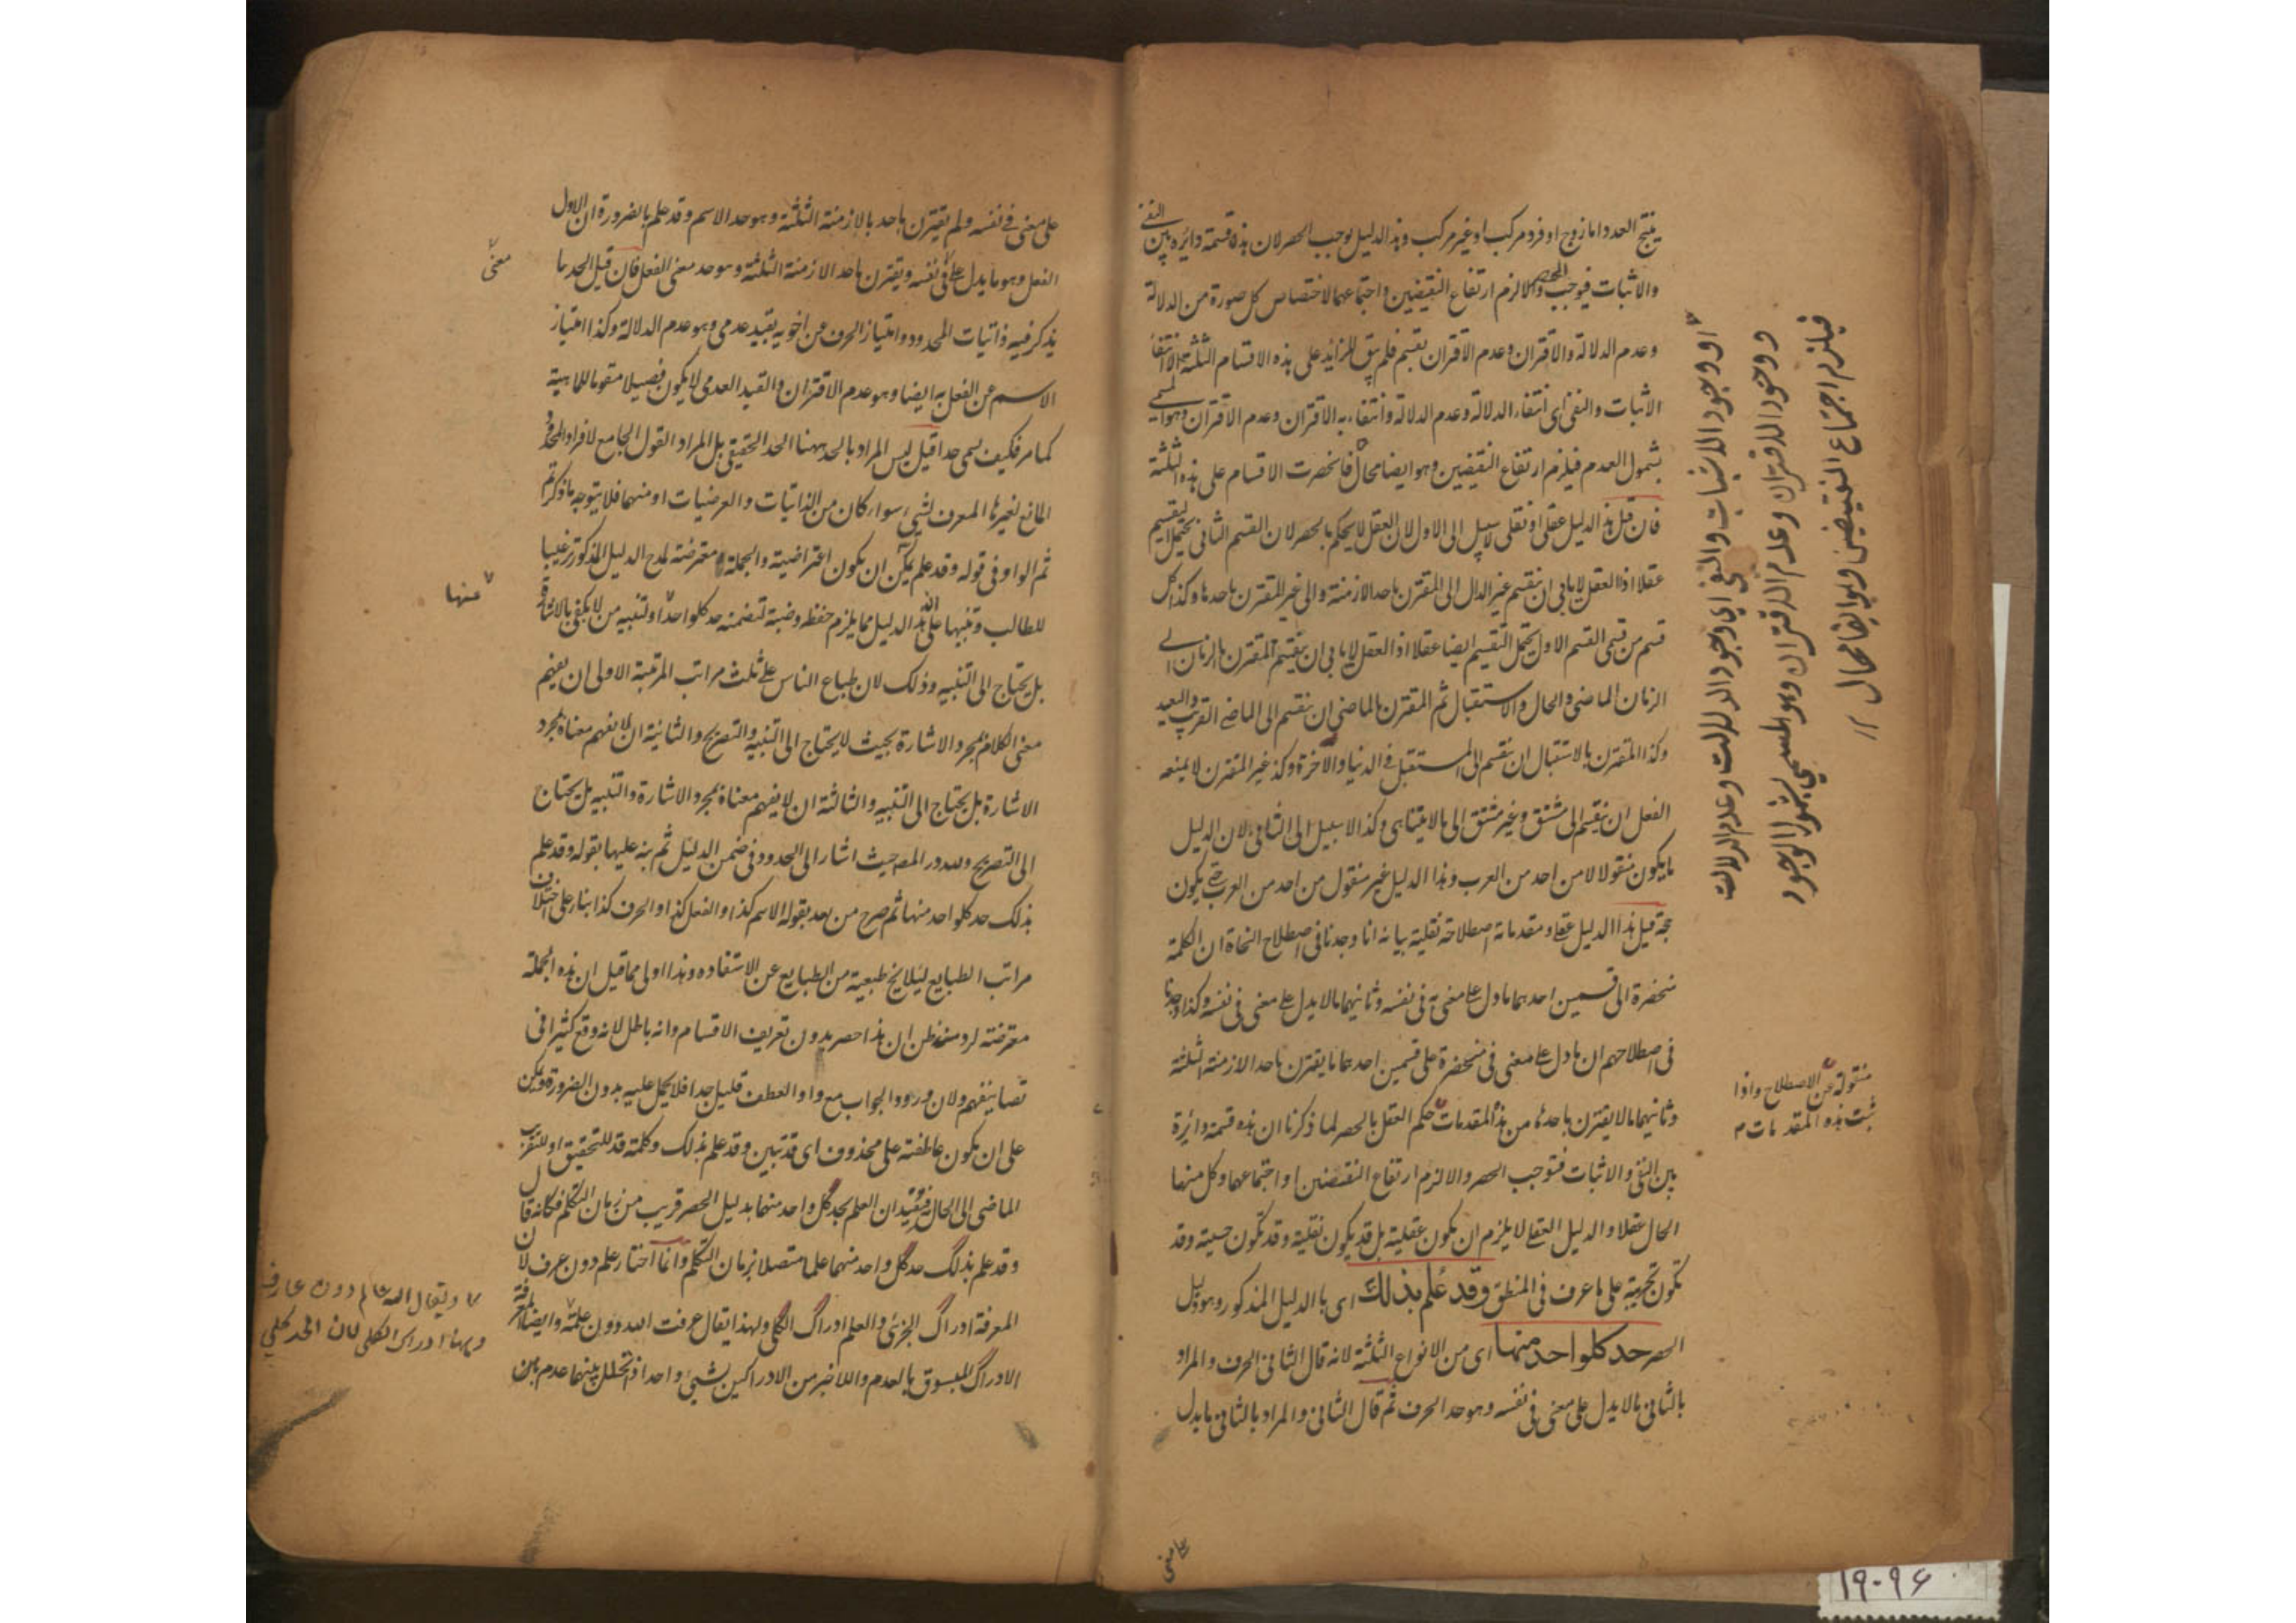 ينتج العدد اما زوج او فرد مركب او غير مركب وهذا الدليل يوجب الحصر لان هذه قسمة دائرة بين النفي
والاثبات فيوجب الحصر والا لزم ارتفاع النقيضين واجتماعهما لاختصاص كل صورة من الدلالة
وعدم الدلالة والاقتران وعدم الاقتران بقسم فلم يبق للزائد على هذه الاقسام الثلثة الا انتفاء
الاثبات والنفي اى انتفاء الدلالة وعدم الدلالة وانتفاء به الاقتران وعدم الاقتران وهو المسمى
بشمول العدم فيلزم ارتفاع النقيضين وهو ايضا محال فانحصرت الاقسام على هذه الثلثة
فان قيل هذا الدليل عقلى او نقلى لا سبيل الى الاول لان العقل لا يحكم بالحصر لان القسم الثانى يحتمل التقسيم
عقلا اذ العقل لا يابى ان ينقسم غير الدال الى المقترن باحد الازمنة والى غير المقترن باحدها وكذا كل
قسم من قسمى القسم الاول يحتمل التقسيم ايضا عقلا اذ العقل لا يابى ان ينقسم المقترن بالزمان الى
الزمان الماضى والحال والاستقبال ثم المقترن بالماضى ان ينقسم الى الماضى القريب والبعيد
وكذا المقترن بالاستقبال ان ينقسم الى المستقبل فى الدنيا والآخرة وكذا غير المقترن لا يمنعه
الفعل ان ينقسم الى مشتق وغير مشتق الى ما لا يتناهى وكذا لا سبيل الى الثانى لان الدليل
ما يكون منقولا من احد من العرب وهذا الدليل غير منقول من احد من العرب حتى يكون
حجة قيل هذا الدليل عقلى ومقدماته اصطلاحية نقلية بيانه انا وجدنا فى اصطلاح النحاة ان الكلمة
منحصرة الى قسمين احدهما ما دل على معنى فى نفسه وثانيهما ما لا يدل على معنى فى نفسه وكذا وجدنا
فى اصطلاحهم ان ما دل على معنى فى منحصرة على قسمين احدهما ما يقترن باحد الازمنة الثلثة
وثانيهما ما لا يقترن باحدها من هذه المقدمات حكم العقل بالحصر لما ذكرنا ان هذه قسمة دائرة
بين النفى والاثبات فتوجب الحصر والا لزم ارتفاع النقيضين او اجتماعهما وكل منهما
محال عقلا والدليل العقلى لا يلزم ان يكون عقلية بل قد يكون نقلية وقد تكون حسية وقد
تكون تجربية على ما عرف فى المنطق وقد علم بذلك اى بالدليل المذكور وهو دليل
الحصر حد كل واحد منها اى من الانواع الثلثة لانه قال الثانى الحرف والمراد
بالثانى ما لا يدل على معنى فى نفسه وهو حد الحرف ثم قال الثانى والمراد بالثانى ما يدل
على معنى
او وجود الاثبات والنفى اى وجود الدلالت وعدم الدلالت
ووجود الاقتران وعدم الاقتران وهو المسمى بشمول الوجود
فيلزم اجتماع النقيضين وهو ايضا محال
منقولة عن الاصطلاح واذا
ثبت هذه المقدمات م
على معنى فى نفسه ولم يقترن باحد بالازمنة الثلثة وهو حد الاسم وقد علم بالضرورة ان الاول
الفعل وهو ما يدل على فى نفسه ويقترن باحد الازمنة الثلثة وهو حد معنى الفعل فان قيل الحد ما
يذكر فيه ذاتيات المحدود وامتياز الحرف عن اخويه بقيد عدمى وهو عدم الدلالة وكذا امتياز
الاسم عن الفعل به ايضا وهو عدم الاقتران والقيد العدمى لا يكون فصيلا مقوما للماهية
كما مر فكيف يسمى حدا قيل ليس المراد بالحد ههنا الحد الحقيقى بل المراد القول الجامع لافراد المحدود
المانع لغيرها المعرف لشىء سواء كان من الذاتيات والعرضيات او منهما فلا يتوجه ما ذكرتم
ثم الواو فى قوله وقد علم يمكن ان يكون اعتراضية والجملة معترضة لمدح الدليل المذكور ترغيبا
للطالب وتنبيها على ان هذا الدليل مما يلزم حفظه وضبطه لتضمنه حد كل واحد او تنبيه من لا يكفى بالاشارة
بل يحتاج الى التنبيه وذلك لان طباع الناس على ثلث مراتب المرتبة الاولى ان يفهم
معنى الكلام بمجرد الاشارة بحيث لا يحتاج الى التنبيه والتصريح والثانية ان لا يفهم معناه بمجرد
الاشارة بل يحتاج الى التنبيه والثالثة ان لا يفهم معناه بمجرد الاشارة والتنبيه بل يحتاج
الى التصريح ولله در المص حيث اشار الى الحدود فى ضمن الدليل ثم نبه عليها بقوله وقد علم
بذلك حد كل واحد منها ثم صرح من بعد بقوله الاسم كذا والفعل كذا والحرف كذا بناء على اختلاف
مراتب الطبايع لئلا يخ طبيعة من الطبايع عن الاستفاده وهذا اولى مما قيل ان هذه الجملة
معترضة لرد من ظن ان هذا حصر بدون تعريف الاقسام وانه باطل لانه وقع كثيرا فى
تصانيفهم ولان ورود الجواب مع واو العطف قليل جدا فلا يحمل عليه بدون الضرورة ويمكن
على ان يكون عاطفة على محذوف اى قد تبين وقد علم بذلك وكلمة قد للتحقيق او لتقريب
الماضى الى الحال فيفيد ان العلم بحد كل واحد منها بدليل الحصر قريب من زمان التكلم فكانه قال
وقد علم بذلك حد كل واحد منهما علما متصلا بزمان التكلم وانما اختار علم دون عرف لان
المعرفة ادراك الجزئى والعلم ادراك الكلى ولهذا يقال عرفت الله دون علمته وايضا المعرفة
الادراك المسبوق بالعدم وللاخير من الادراكين بشىء واحد اذا تخلل بينهما عدم بين
معنى
منها
ويقال الله عالم دون عارف
وههنا ادراك الكلى لان الحد كلى
۱۹۰۹۶